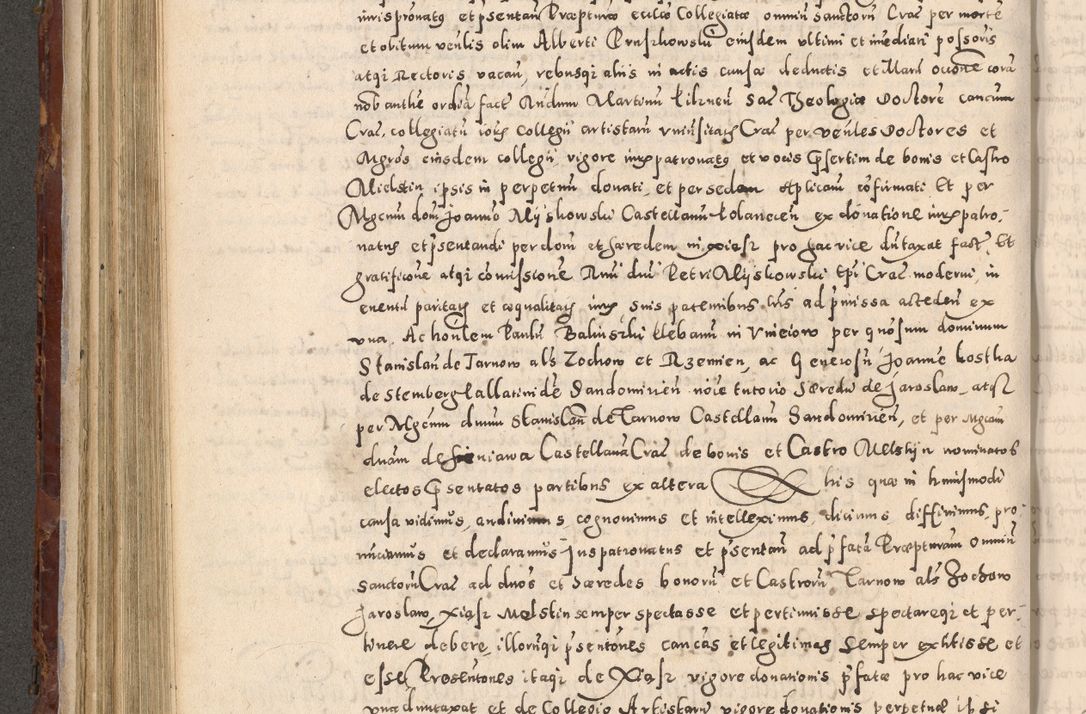 iurispronatus et psentan Præpturæ eccliæ Collegiatæ omnium sanctorū Crac per mortē
et obitum venlis olim Alberti Pruszkowski eiusdem vltimi et imediati possoris
atqi Rectoris vacan, rebusqi aliis in actis causæ deductis et Marti
ordia fact Martinū sac Theologiæ Doctorē
Crac, collegiatū collegii artistarū vniuersitatis Crac per venles Doctores et
Mgros eiusdem collegii, vigore iurispatronatus et vocis psertim de bonis et Castro
Mielstin ipsis in perpetuū donati, et per sedem Aplicam cōfirmati Et per
Mgcum dom Joannē Myszkowski Castellanū ex donatione iurispatro-
natus et psentandi per dom et hæredem in xiasz pro hac vice duntaxat fact, Et
gratificōne atqi cōmissione Rmi dni Petri Myszkowski Epi Crac moderni, in
euentū paritatis et cœqualitatis iuris suis patentibus lris ad pmissa accedeñ ex
vna, Ac honlem Paulū Balinszki plebanū in Vnieiow per gnosum dominum
Stanislaū de Tarnow als Zochow et Rzemien, ac Generosū Joannē kostka
de Stemberg Pallatinidē Sandomirieñ noīe tutorio hæredū de Jaroslaw, atqi
per Mgcum dnum Stanislaū de Tarnow Castellanū Sandomirieñ, et per Mgcam
dnam de Sieniawa Castellanā Crac de bonis et Castro Melstijn nominatos
electos psentatos partibus ex altera his quæ in huiusmodi
causa vidimus, audiuimus, cognouimus et intelleximus, dicimus diffinimus, pro
nūciamus et declaramus Juspatronatus et psentan ad pfatā Præpturam omniū
sanctorū Crac ad dnos et hæredes bonorū et Castrorū Tarnow als Zochow
Jaroslaw, xiasz Melstin semper spectasse et pertinuisse spectareqi et per-
tinere debere, illorūqi psentōnes canonicas et legitimas semper extitisse et
esse Præsentōnes itaqi de Xiasz vigore donationis pfatæ pro hac vice
vna duntaxat et de Collegio Artistarū vigore donationis perpetuæ